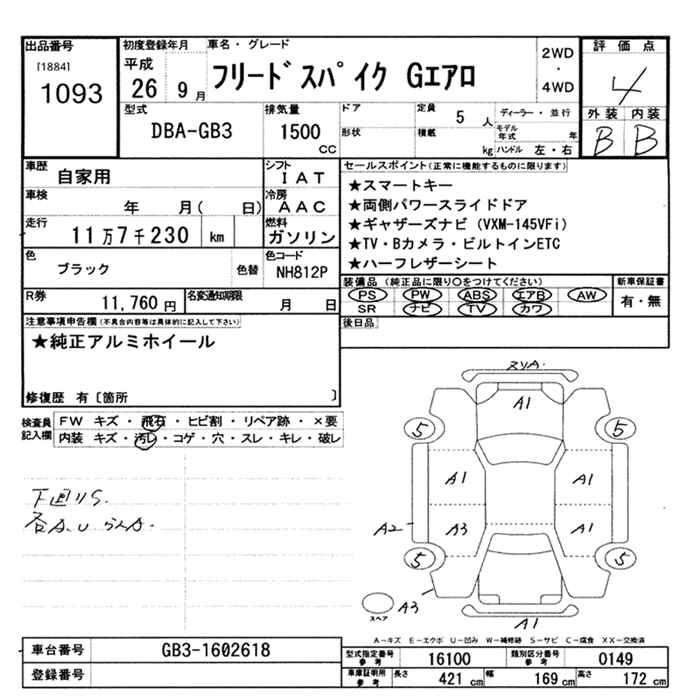 出品番号
[1884]
1093
初度登録年月
平成
26 9 月
車名・グレード
フリードスパイク Gエアロ
2WD
・
4WD
評価点
4
外装 内装
B B
型式
DBA-GB3
排気量
1500
CC
ドア
形状
定員
5 人
積載
kg
ディーラー・並行
モデル年式 年
ハンドル 左・右
車歴
自家用
シフト
IAT
車検
年 月( 日)
冷房
AAC
走行
11万7千230 km
燃料
ガソリン
色
ブラック
色替
色コード
NH812P
R券
11,760 円
名変通知期限
月 日
セールスポイント(正常に機能するものに限ります)
★スマートキー
★両側パワースライドドア
★ギャザーズナビ (VXM-145VFi)
★TV・Bカメラ・ビルトインETC
★ハーフレザーシート
装備品 (純正品に限り○をつけてください)
PS PW ABS エアB AW
SR ナビ TV カワ
新車保証書
有・無
後日品
注意事項申告欄 (不具合内容等は具体的に記入して下さい)
★純正アルミホイール
修復歴 有 [箇所 ]
検査員
記入欄
FW キズ・飛石・ヒビ割・リペア跡・×要
内装 キズ・汚レ・コゲ・穴・スレ・キレ・破レ
下廻りS.
各A.U
A1
5 5
A1 A1
A2 A3 A1
5 5
スペア
A3
A1
A-キズ E-エクボ U-凹み W-補修跡 S-サビ C-腐食 XX-交換済
車台番号
GB3-1602618
登録番号
型式指定番号
参考
16100
類別区分番号
参考
0149
車庫証明用
参考
長さ 421 cm 幅 169 cm 高さ 172 cm